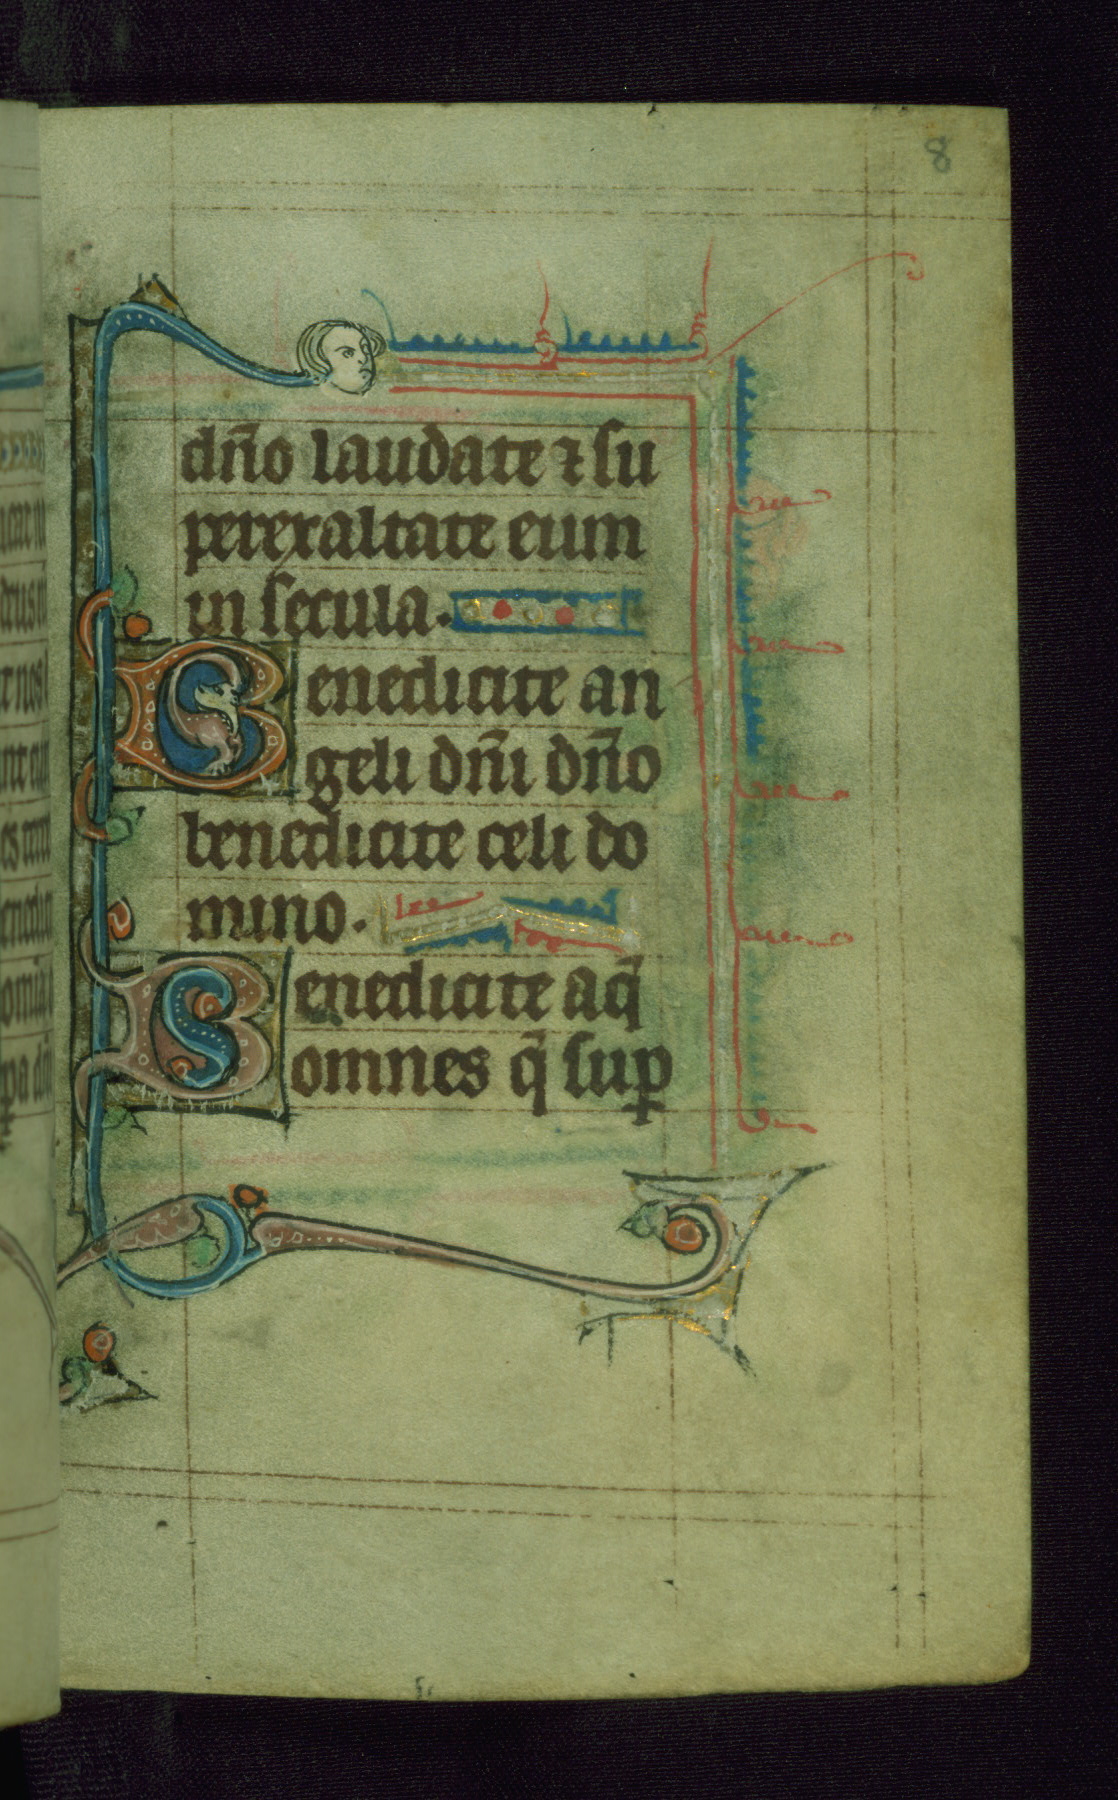 8
dn̄o laudate ⁊ su
perexaltate eum
in secula.
Benedicite an
geli dn̄i dn̄o
benedicite celi do
mino.
Benedicite aq̄
omnes q̄ suꝑ